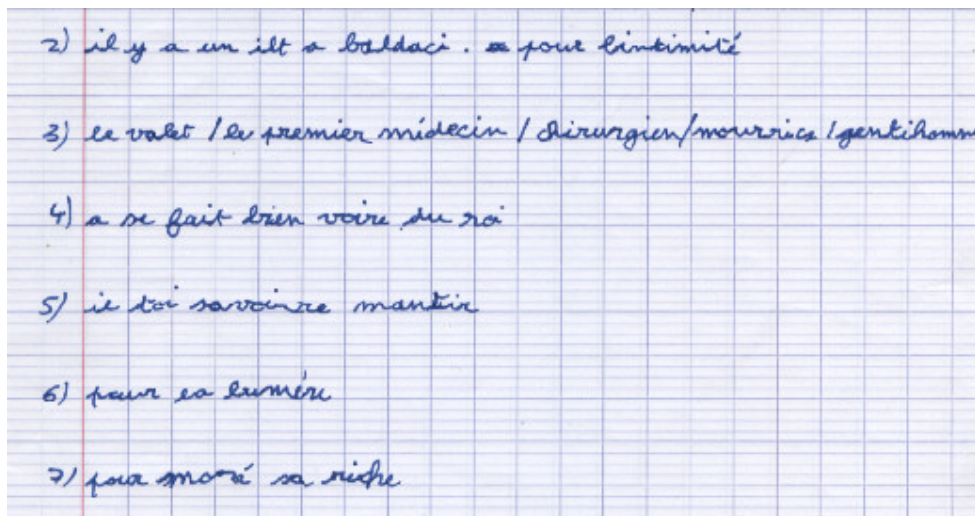 2) il y a un ilt a baldaci . pour lintimité
3) le valet / le premier médecin / chirurgien / nourrice / gentihomm
4) a se fait bien voire du roi
5) il doi savoire mantir
6) pour la lumére
7) pour moré sa riche